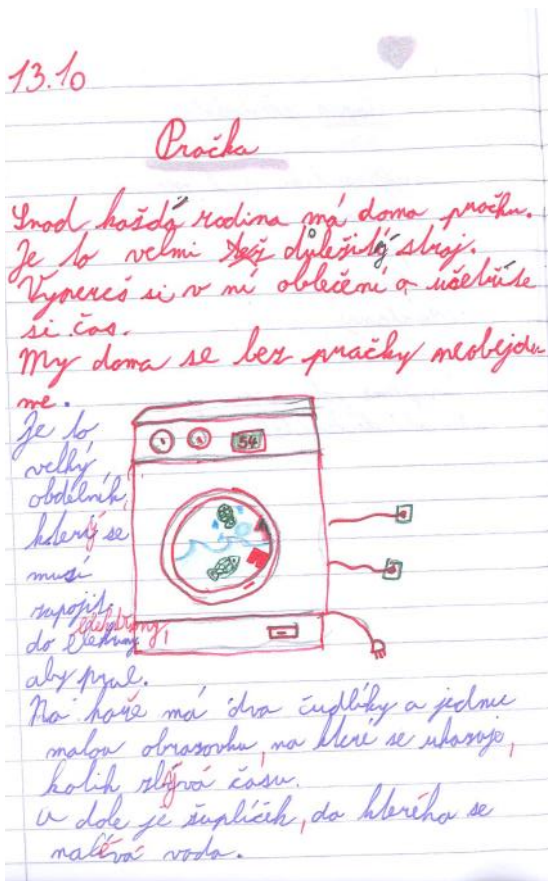 13.10
Pračka
Snad každá rodina má doma pračku.
Je to velmi důležitý stroj.
Vypereš si v ní oblečení a ušetříte
si čas.
My doma se bez pračky neobejde
me.
54
Je to
velký
obdélník,
který se
musí
zapojit
do elektřiny,
aby pral.
Na hoře má dva čudlíky a jednu
malou obrazovku, na které se ukazuje,
kolik zbývá času.
A dole je šuplíček, do kterého se
nalévá voda.